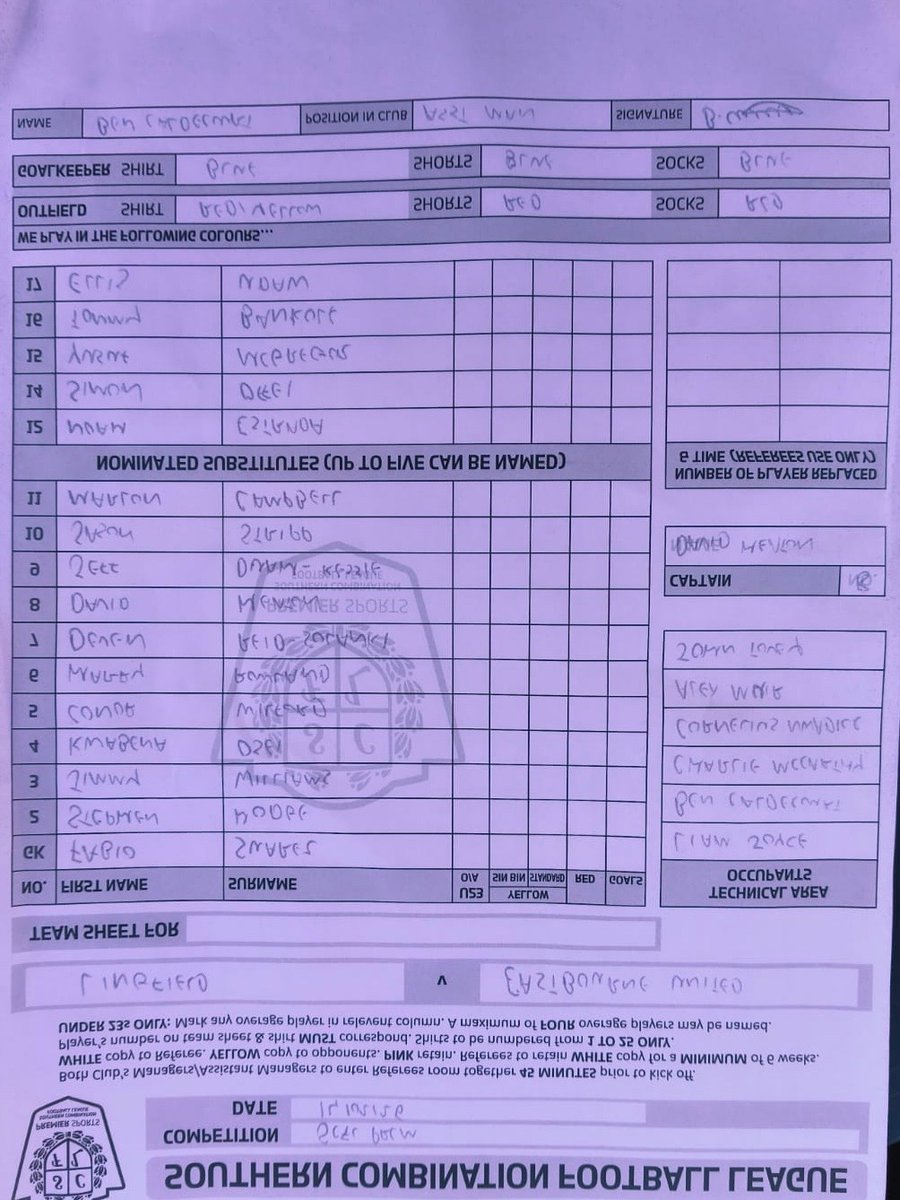 SOUTHERN COMBINATION FOOTBALL LEAGUE
PREMIER SPORTS
SOUTHERN COMBINATION
FOOTBALL LEAGUE
S C
F L
COMPETITION SCFL PREM
DATE
Both Club's Managers/Assistant Managers to enter Referees room together 45 MINUTES prior to kick off.
WHITE copy to Referee. YELLOW copy to opponents. PINK retain. Referees to retain WHITE copy for a MINIMUM of 6 weeks.
Player's number on team sheet & shirt MUST correspond. Shirts to be numbered from 1 TO 25 ONLY.
UNDER 23s ONLY: Mark any overage player in relevent column. A maximum of FOUR overage players may be named.
LINGFIELD V EASTBOURNE UNITED
TEAM SHEET FOR
NO. FIRST NAME SURNAME O/A U23 YELLOW SIN BIN STANDARD RED GOALS
GK FABIO SUAREZ
2 STEPHEN HODGE
3 JIMMY WILLIAMS
4 KWABENA OSEI
5 CONOR WILFORD
6 ROWLAND
7 DEVEN REID-SOLANKI
8 DAVID MENTON
9 JEFF DUAH-KESSIE
10 JASON STRIPP
11 MARLON CAMPBELL
NOMINATED SUBSTITUTES (UP TO FIVE CAN BE NAMED)
12 NOAH
14 SIMON
15 MCGREGOR
16 TOMMY BANKOLE
17 ELLIS
TECHNICAL AREA
OCCUPANTS
LIAM JOYCE
BEN CALDECOURT
CHARLIE MCCARTHY
CORNELIUS
ALEX MUIR
JOHN TOVEY
CAPTAIN NO. 8
DAVID MENTON
NUMBER OF PLAYER REPLACED
& TIME (REFEREES USE ONLY)
WE PLAY IN THE FOLLOWING COLOURS...
OUTFIELD SHIRT RED/YELLOW SHORTS RED SOCKS RED
GOALKEEPER SHIRT BLUE SHORTS BLUE SOCKS BLUE
NAME BEN CALDECOURT POSITION IN CLUB ASST MAN SIGNATURE